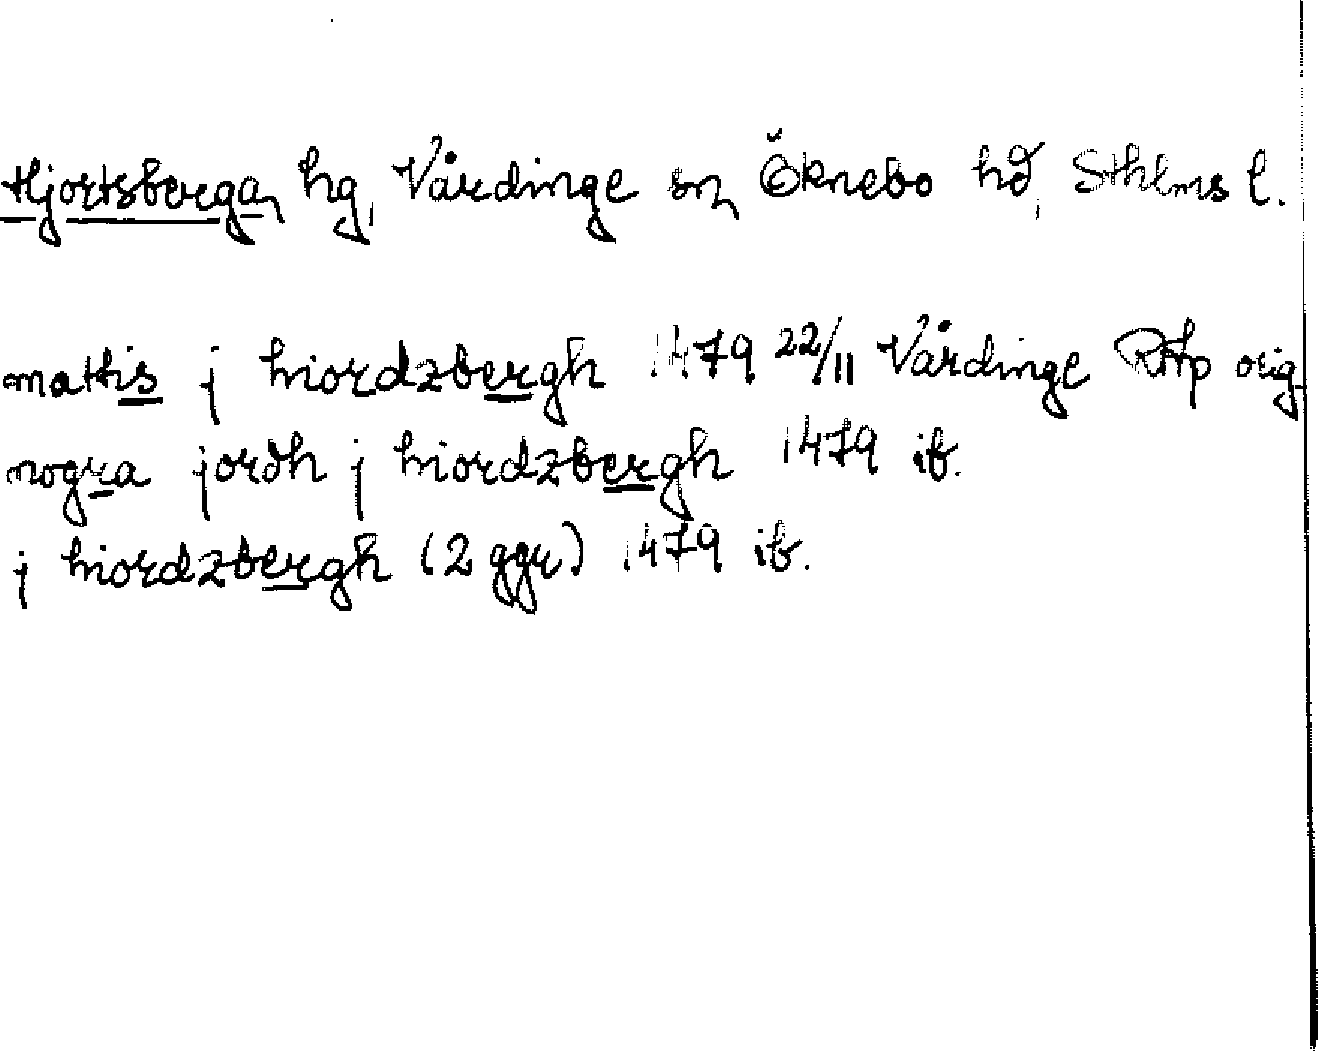 Hjortsberga, hg, Vårdinge sn, Öknebo hd, Sthlms l.
mattis j hiordzbergh 1479 22/11 Vårdinge RAp orig
nogra jordh j hiordzbergh 1479 ib.
j hiordzbergh (2 ggr) 1479 ib.